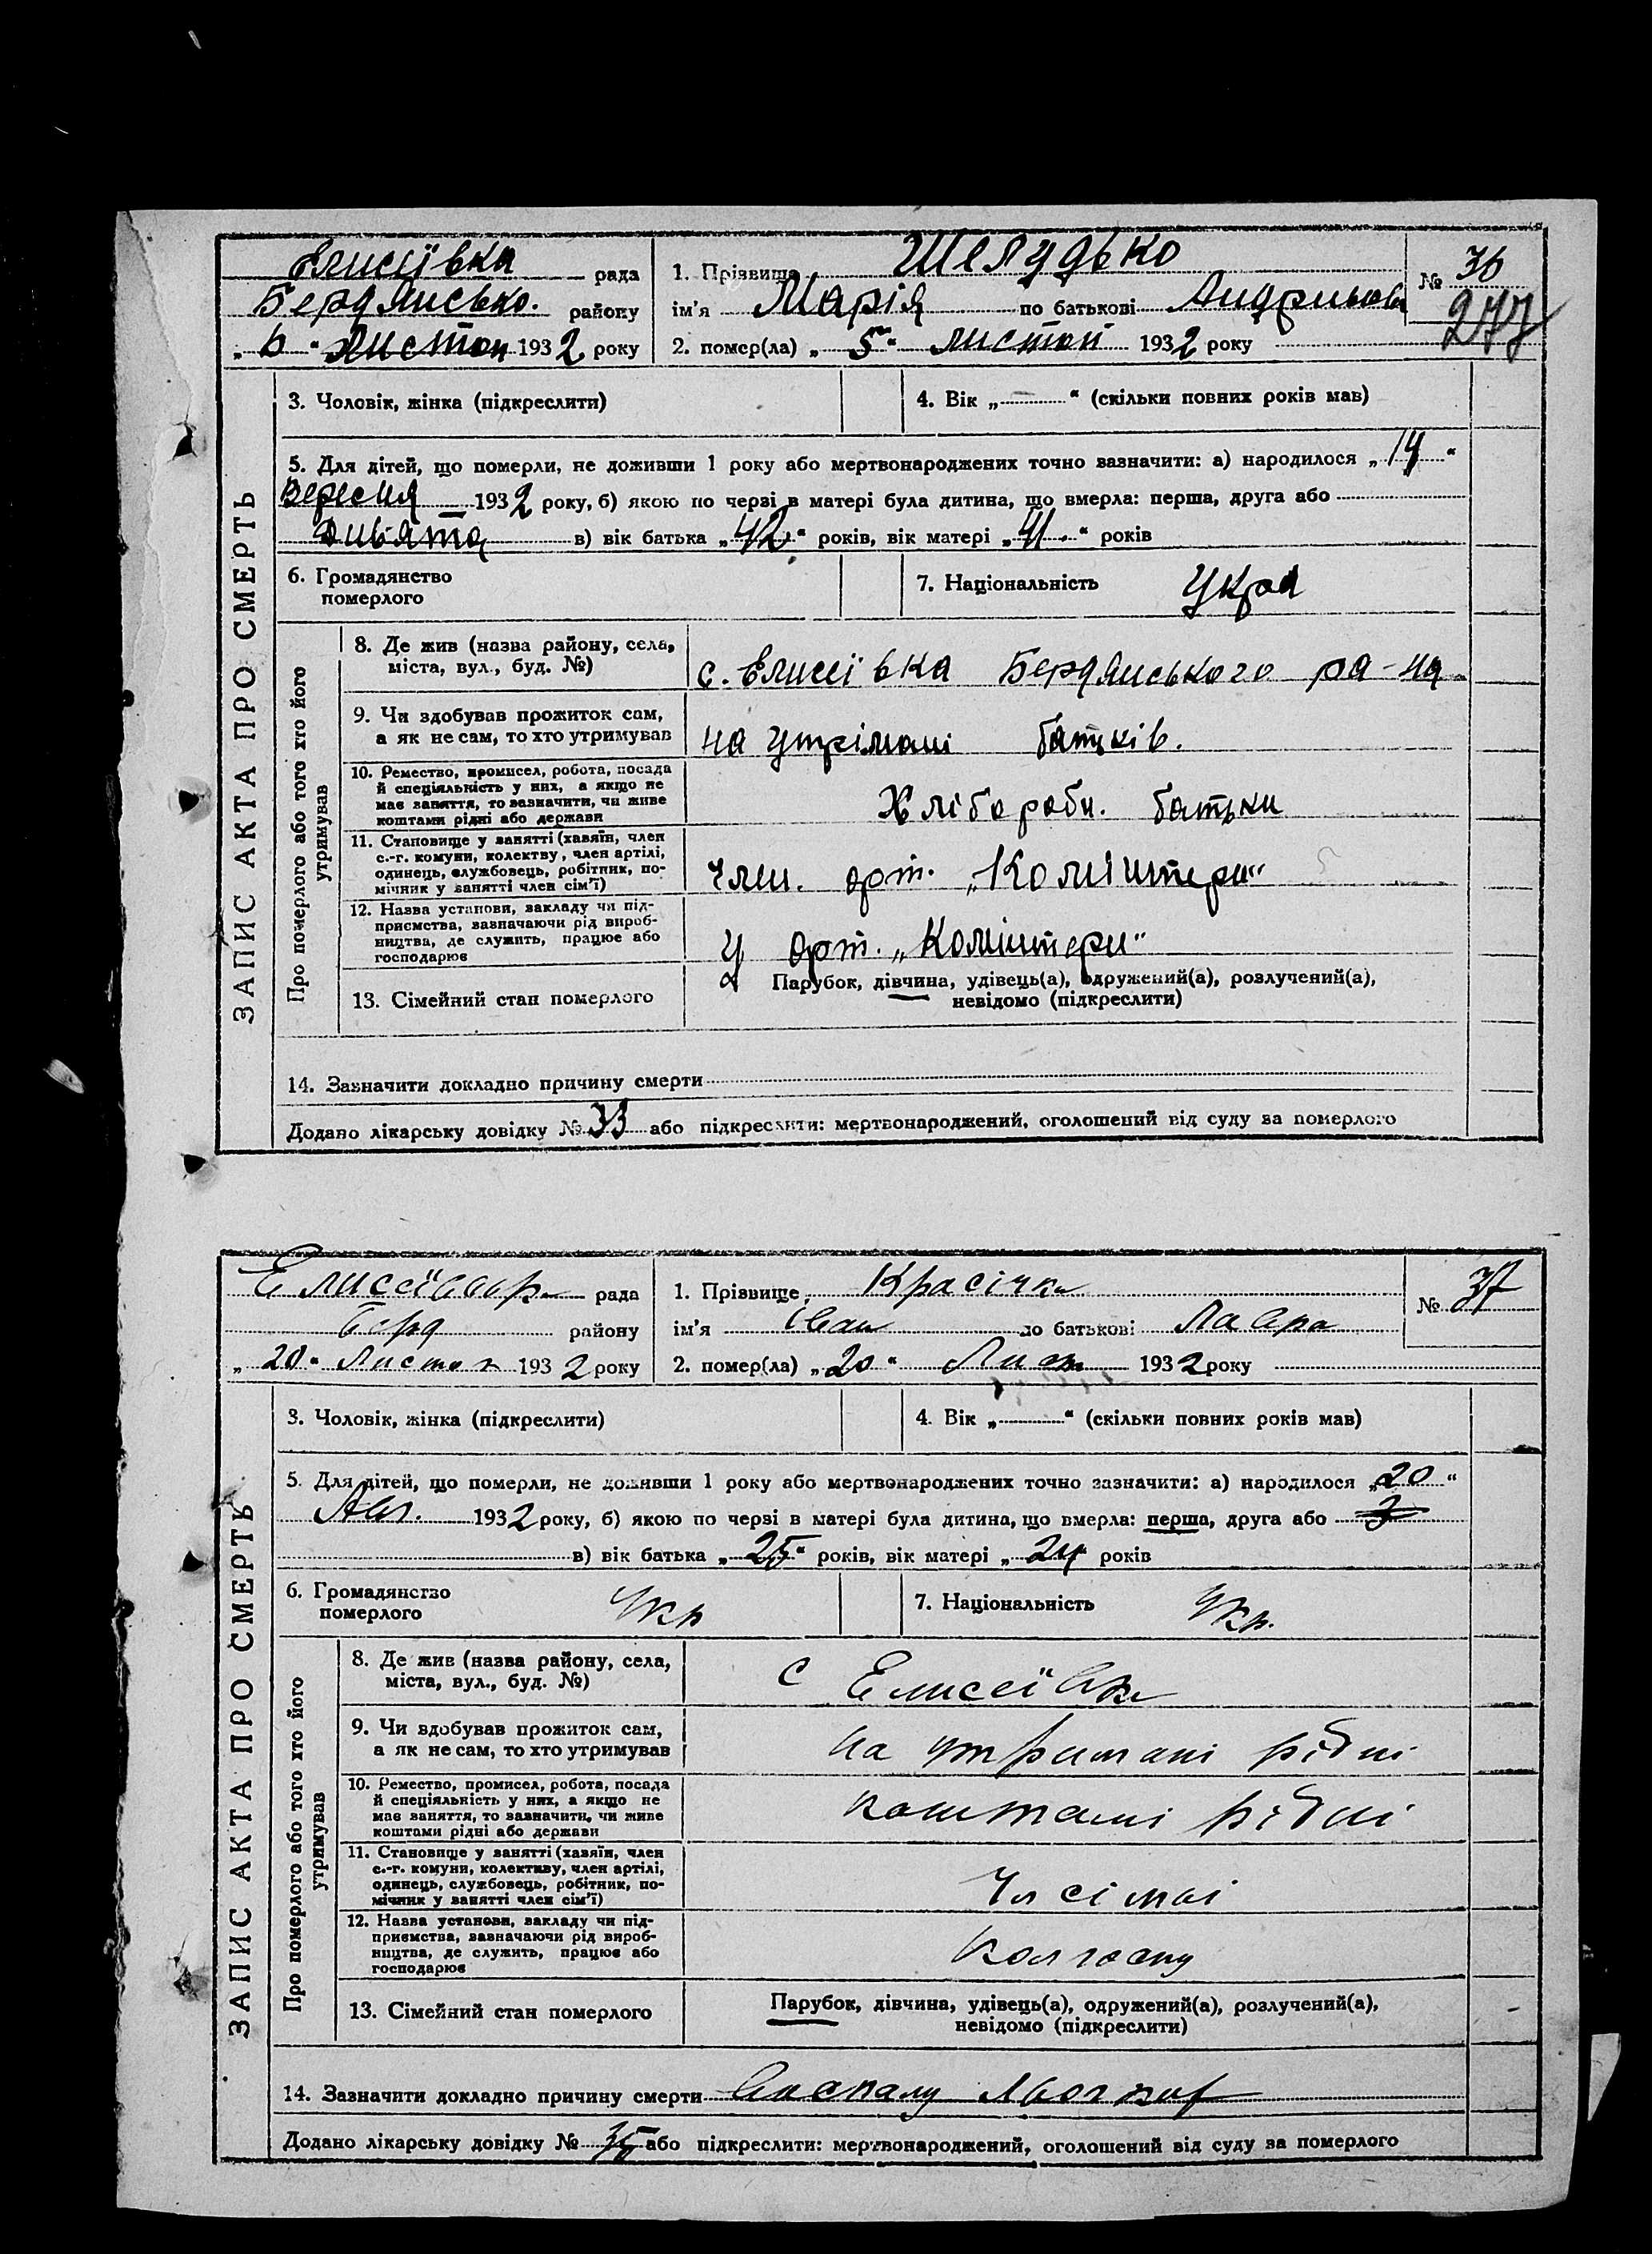 Елисіївка рада
Бердянсько. району
„ 6 “ Листоп 1932 року
1. Прізвище Шелудько
ім'я Марія по батькові
2. помер(ла) „ 5 “ листоп 1932 року
№ 36
277
ЗАПИС АКТА ПРО СМЕРТЬ
3. Чоловік, жінка (підкреслити)
4. Вік „ “ (скільки повних років мав)
5. Для дітей, що померли, не доживши 1 року або мертвонароджених точно вазначити: а) народилося „ 14 “
Вересня 1932 року, б) якою по черзі в матері була дитина, що вмерла: перша, друга або
в) вік батька „ 42 “ років, вік матері „ 41 “ років
6. Громадянство
померлого
7. Національність Укра
Про померлого або того хто його
утримував
8. Де жив (назва району, села,
міста, вул., буд. №)
с. Елисіївка Бердянського ра-на
9. Чи здобував прожиток сам,
а як не сам, то хто утримував
на утрімані батьків.
10. Ремество, промисел, робота, посада
й спеціяльність у них, а якщо не
має заняття, то зазначити, чи живе
коштами рідні або держави
Хлібороби. батьки
11. Становище у занятті (хавяїн, член
с.-г. комуни, колектву, член артілі,
одинець, службовець, робітник, по-
мічник у занятті член сім'ї)
Член. арт. „Комінтерн“
12. Назва установи, закладу чи під-
приємства, вазначаючи рід вироб-
ництва, де служить, працює або
господарює
У арт. „Комінтерн“
13. Сімейний стан померлого
Парубок, дівчина, удівець(а), одружений(а), розлучений(а),
невідомо (підкреслити)
14. Зазначити докладно причину смерти
Додано лікарську довідку № 33 або підкреслити: мертвонароджений, оголошений від суду за померлого
рада
Берд району
„ 20 “ Листоп 1932 року
1. Прізвище Красічка
ім'я Іван по батькові Лавра
2. помер(ла) „ 20 “ Лист 1932 року
№ 37
ЗАПИС АКТА ПРО СМЕРТЬ
3. Чоловік, жінка (підкреслити)
4. Вік „ “ (скільки повних років мав)
5. Для дітей, що померли, не доживши 1 року або мертвонароджених точно зазначити: а) народилося „ 20 “
Авг. 1932 року, б) якою по черзі в матері була дитина, що вмерла: перша, друга або
в) вік батька „ 25 “ років, вік матері „ 24 “ років
6. Громадянство
померлого
Укр
7. Національність Укр.
Про померлого або того хто його
утримував
8. Де жив (назва району, села,
міста, вул., буд. №)
с Елисеївка
9. Чи здобував прожиток сам,
а як не сам, то хто утримував
на утримані рідні
10. Ремество, промисел, робота, посада
й спеціяльність у них, а якщо не
має заняття, то зазначити, чи живе
коштами рідні або держави
коштамі рідні
11. Становище у занятті (хазяїн, член
с.-г. комуни, колективу, член артілі,
одинець, службовець, робітник, по-
мічник у занятті член сім'ї)
Чл сімі
12. Назва установи, закладу чи під-
приємства, вазначаючи рід вироб-
ництва, де служить, працює або
господарює
Колгоспу
13. Сімейний стан померлого
Парубок, дівчина, удівець(а), одружений(а), розлучений(а),
невідомо (підкреслити)
14. Зазначити докладно причину смерти
Додано лікарську довідку № 35 або підкреслити: мертвонароджений, оголошений від суду за померлого